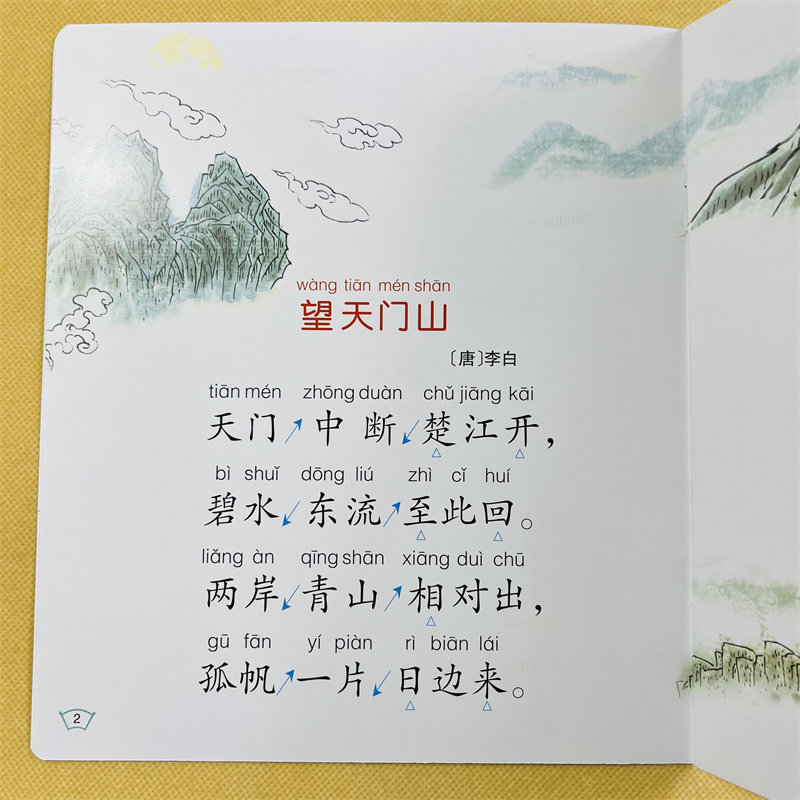 wàng tiān mén shān
望天门山
〔唐〕李白
tiān mén zhōng duàn chǔ jiāng kāi
天门↗中断↙楚江开，
bì shuǐ dōng liú zhì cǐ huí
碧水↙东流↗至此回。
liǎng àn qīng shān xiāng duì chū
两岸↙青山↗相对出，
gū fān yí piàn rì biān lái
孤帆↗一片↙日边来。
2